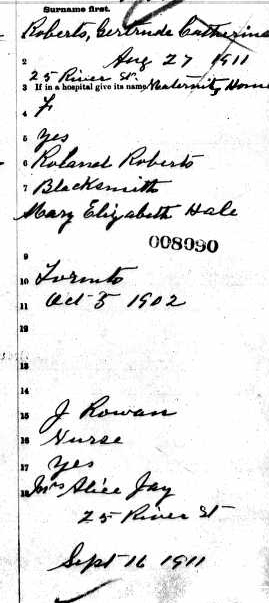 Surname first.
Roberts, Gertrude Catherine
2 Aug 27 1911
25 River St.
3 If in a hospital give its name Maternity Home
4 F
5 yes
6 Roland Roberts
7 Blacksmith
Mary Elizabeth Hale
008090
9
10 Toronto
11 Oct 5 1902
12
13
14
15 J Rowan
16 Nurse
17 Yes
18 Mrs Alice Jay
25 River St
Sept 16 1911